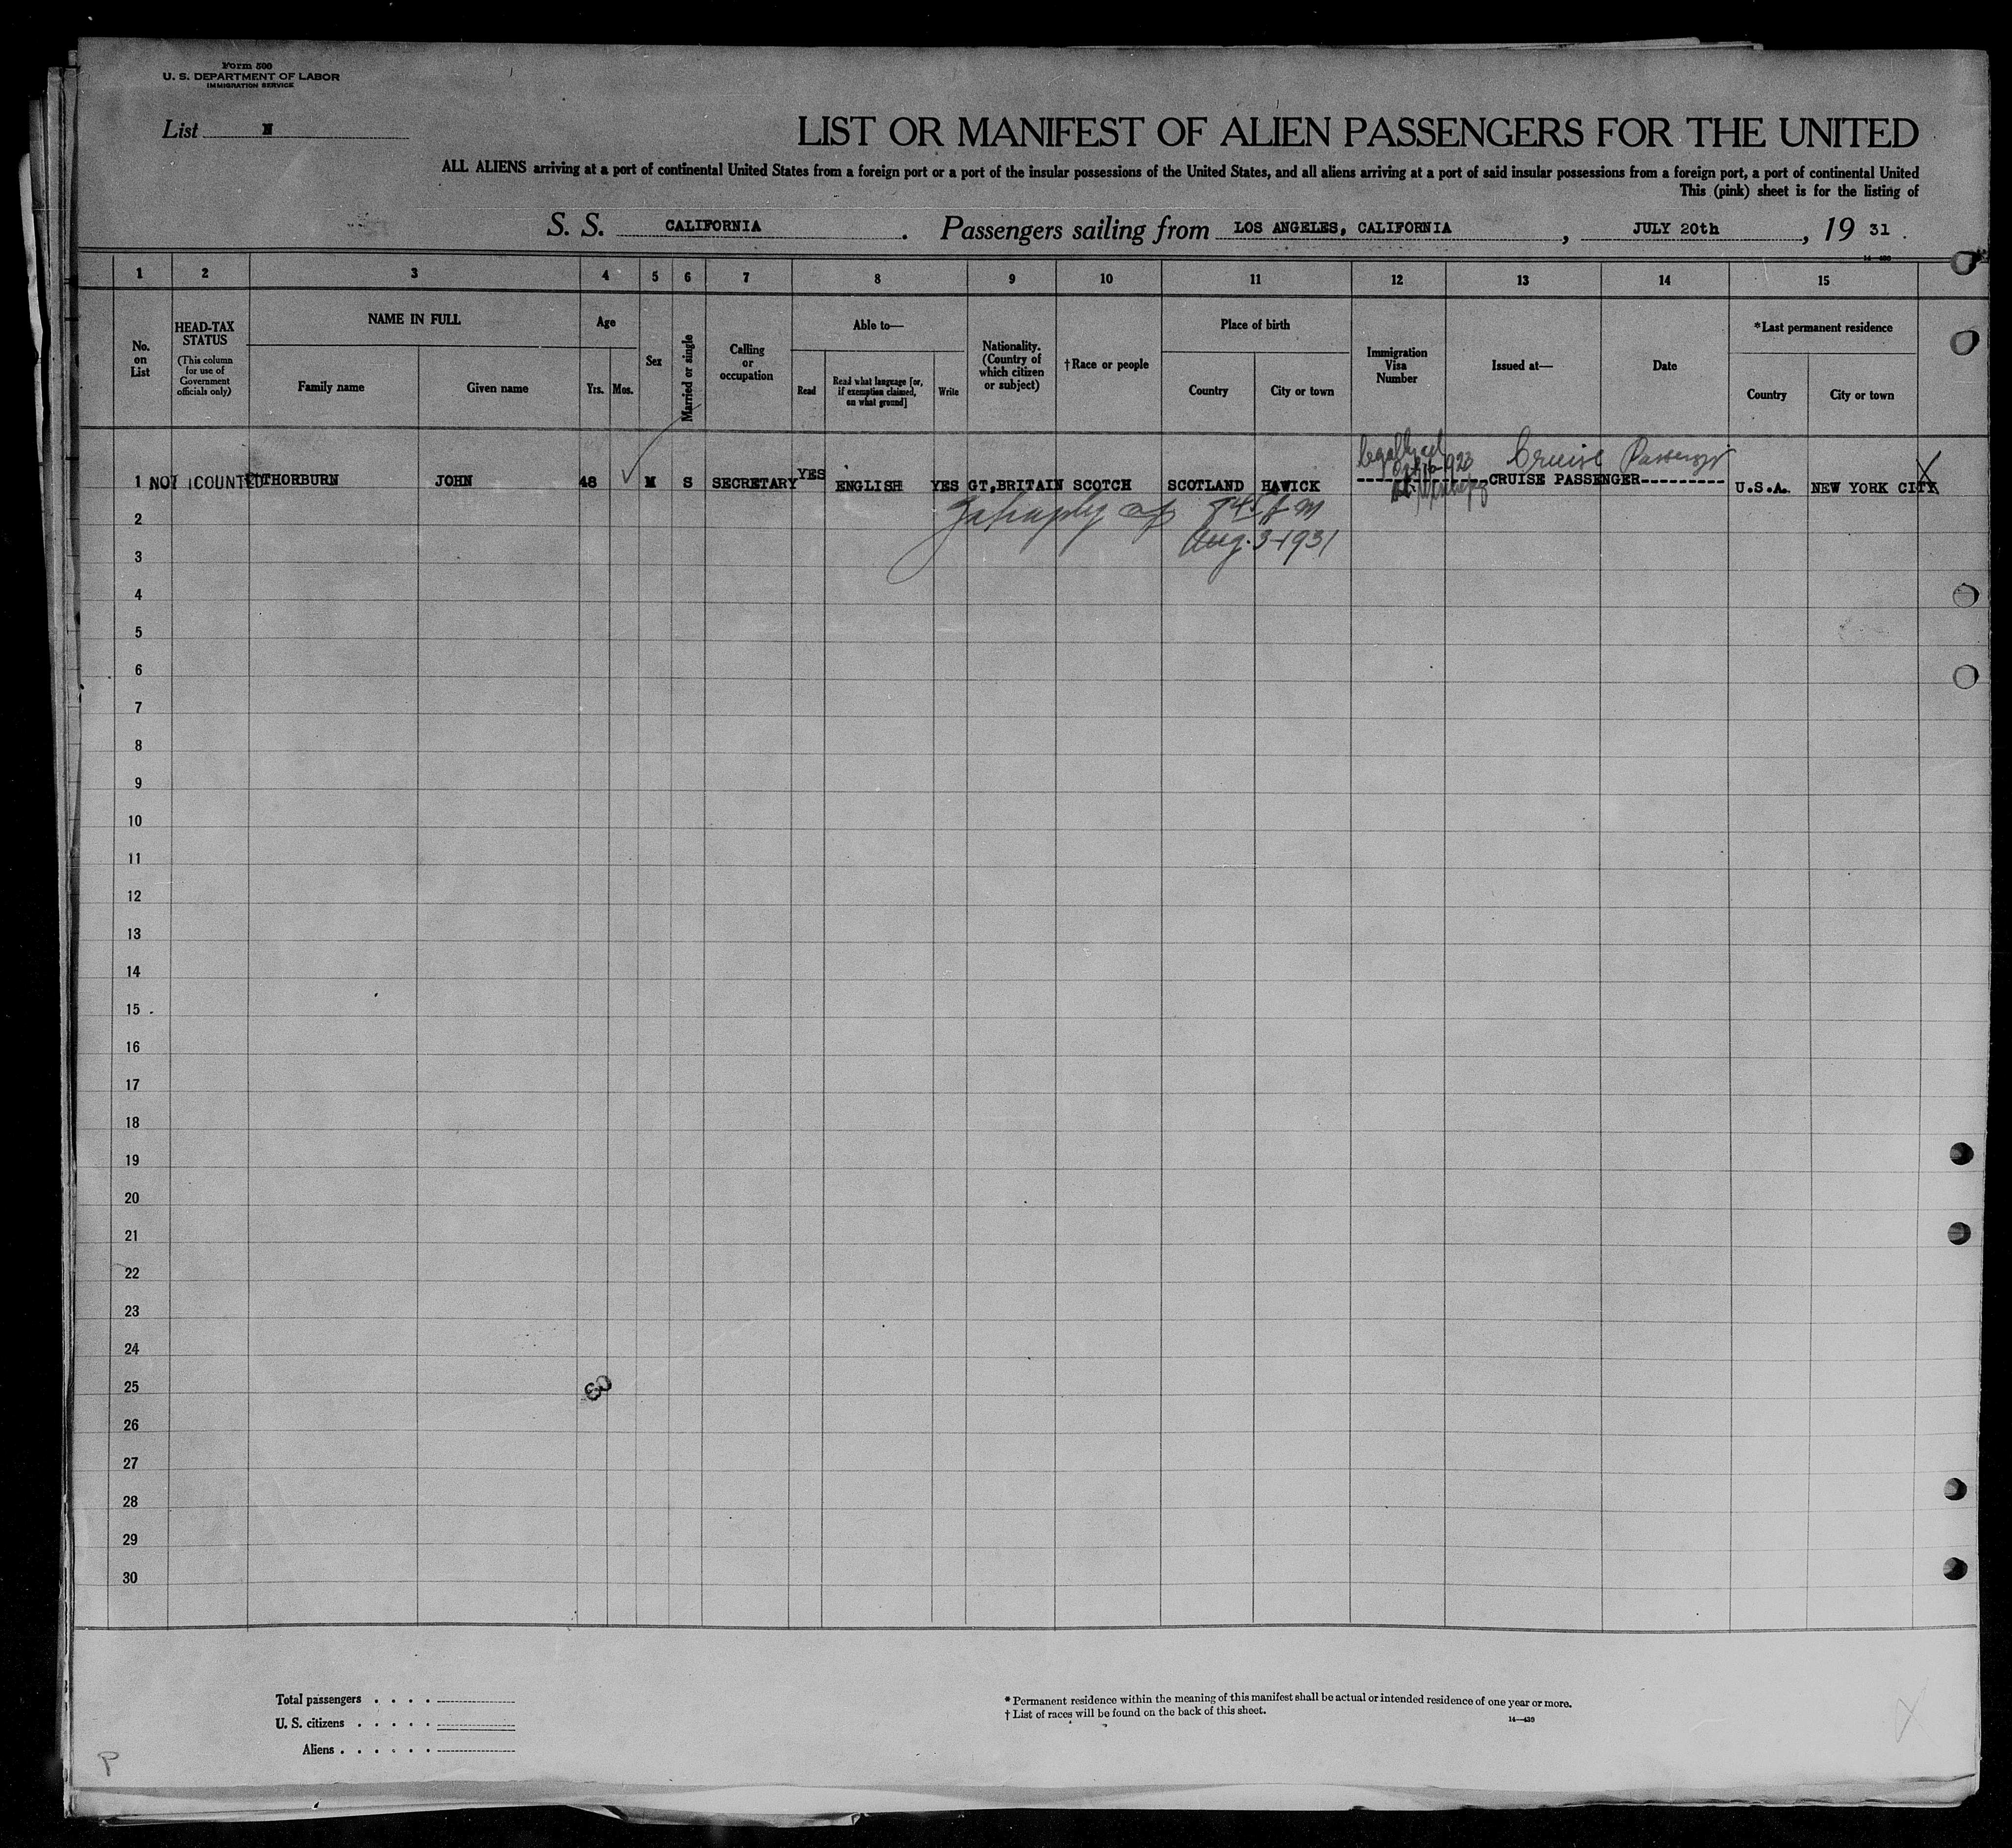 Form 500
U. S. DEPARTMENT OF LABOR
IMMIGRATION SERVICE
List
LIST OR MANIFEST OF ALIEN PASSENGERS FOR THE UNITED
ALL ALIENS arriving at a port of continental United States from a foreign port or a port of the insular possessions of the United States, and all aliens arriving at a port of said insular possessions from a foreign port, a port of continental United
This (pink) sheet is for the listing of
S. S. CALIFORNIA. Passengers sailing from LOS ANGELES, CALIFORNIA, JULY 20th, 19 31.
1 2 3 4 5 6 7 8 9 10 11 12 13 14 15
No. on List
HEAD-TAX STATUS
(This column for use of Government officials only)
NAME IN FULL
Family name
Given name
Age
Yrs. Mos.
Sex
Married or single
Calling or occupation
Able to—
Read
Read what language [or, if exemption claimed, on what ground]
Write
Nationality. (Country of which citizen or subject)
†Race or people
Place of birth
Country
City or town
Immigration Visa Number
Issued at—
Date
*Last permanent residence
Country
City or town
Cruise Passenger
1923
1 NOT COUNTED THORBURN JOHN 48 M S SECRETARY YES ENGLISH YES GT,BRITAIN SCOTCH SCOTLAND HAWICK CRUISE PASSENGER U.S.A. NEW YORK CITY
2
Aug. 3-1931
3
4
5
6
7
8
9
10
11
12
13
14
15
16
17
18
19
20
21
22
23
24
25
26
27
28
29
30
Total passengers . . . .
U. S. citizens . . . . .
Aliens . . . . . .
* Permanent residence within the meaning of this manifest shall be actual or intended residence of one year or more.
† List of races will be found on the back of this sheet.
14—430
P